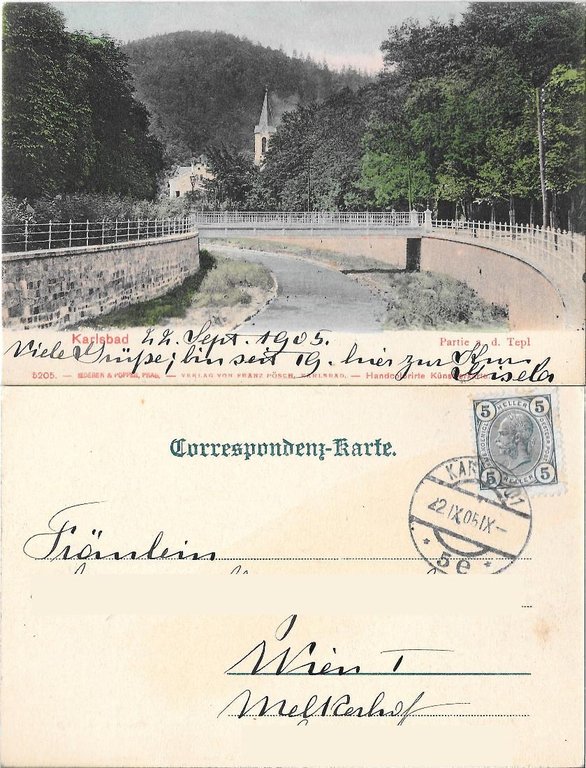 Karlsbad 22. Sept. 1905. Partie a. d. Tepl
Viele Grüße; bin seit 19. hier zur Kur
Gisela
5205. — & POPPER, PRAG. — VERLAG VON FRANZ PÖSCH, KARLSBAD. — Handcolorirte
Correspondenz-Karte.
5 HELLER 5
5 HELLER 5
KARLSBAD 1
22 IX 05 IX-
* 5e *
Fräulein
Wien I
Melkerhof